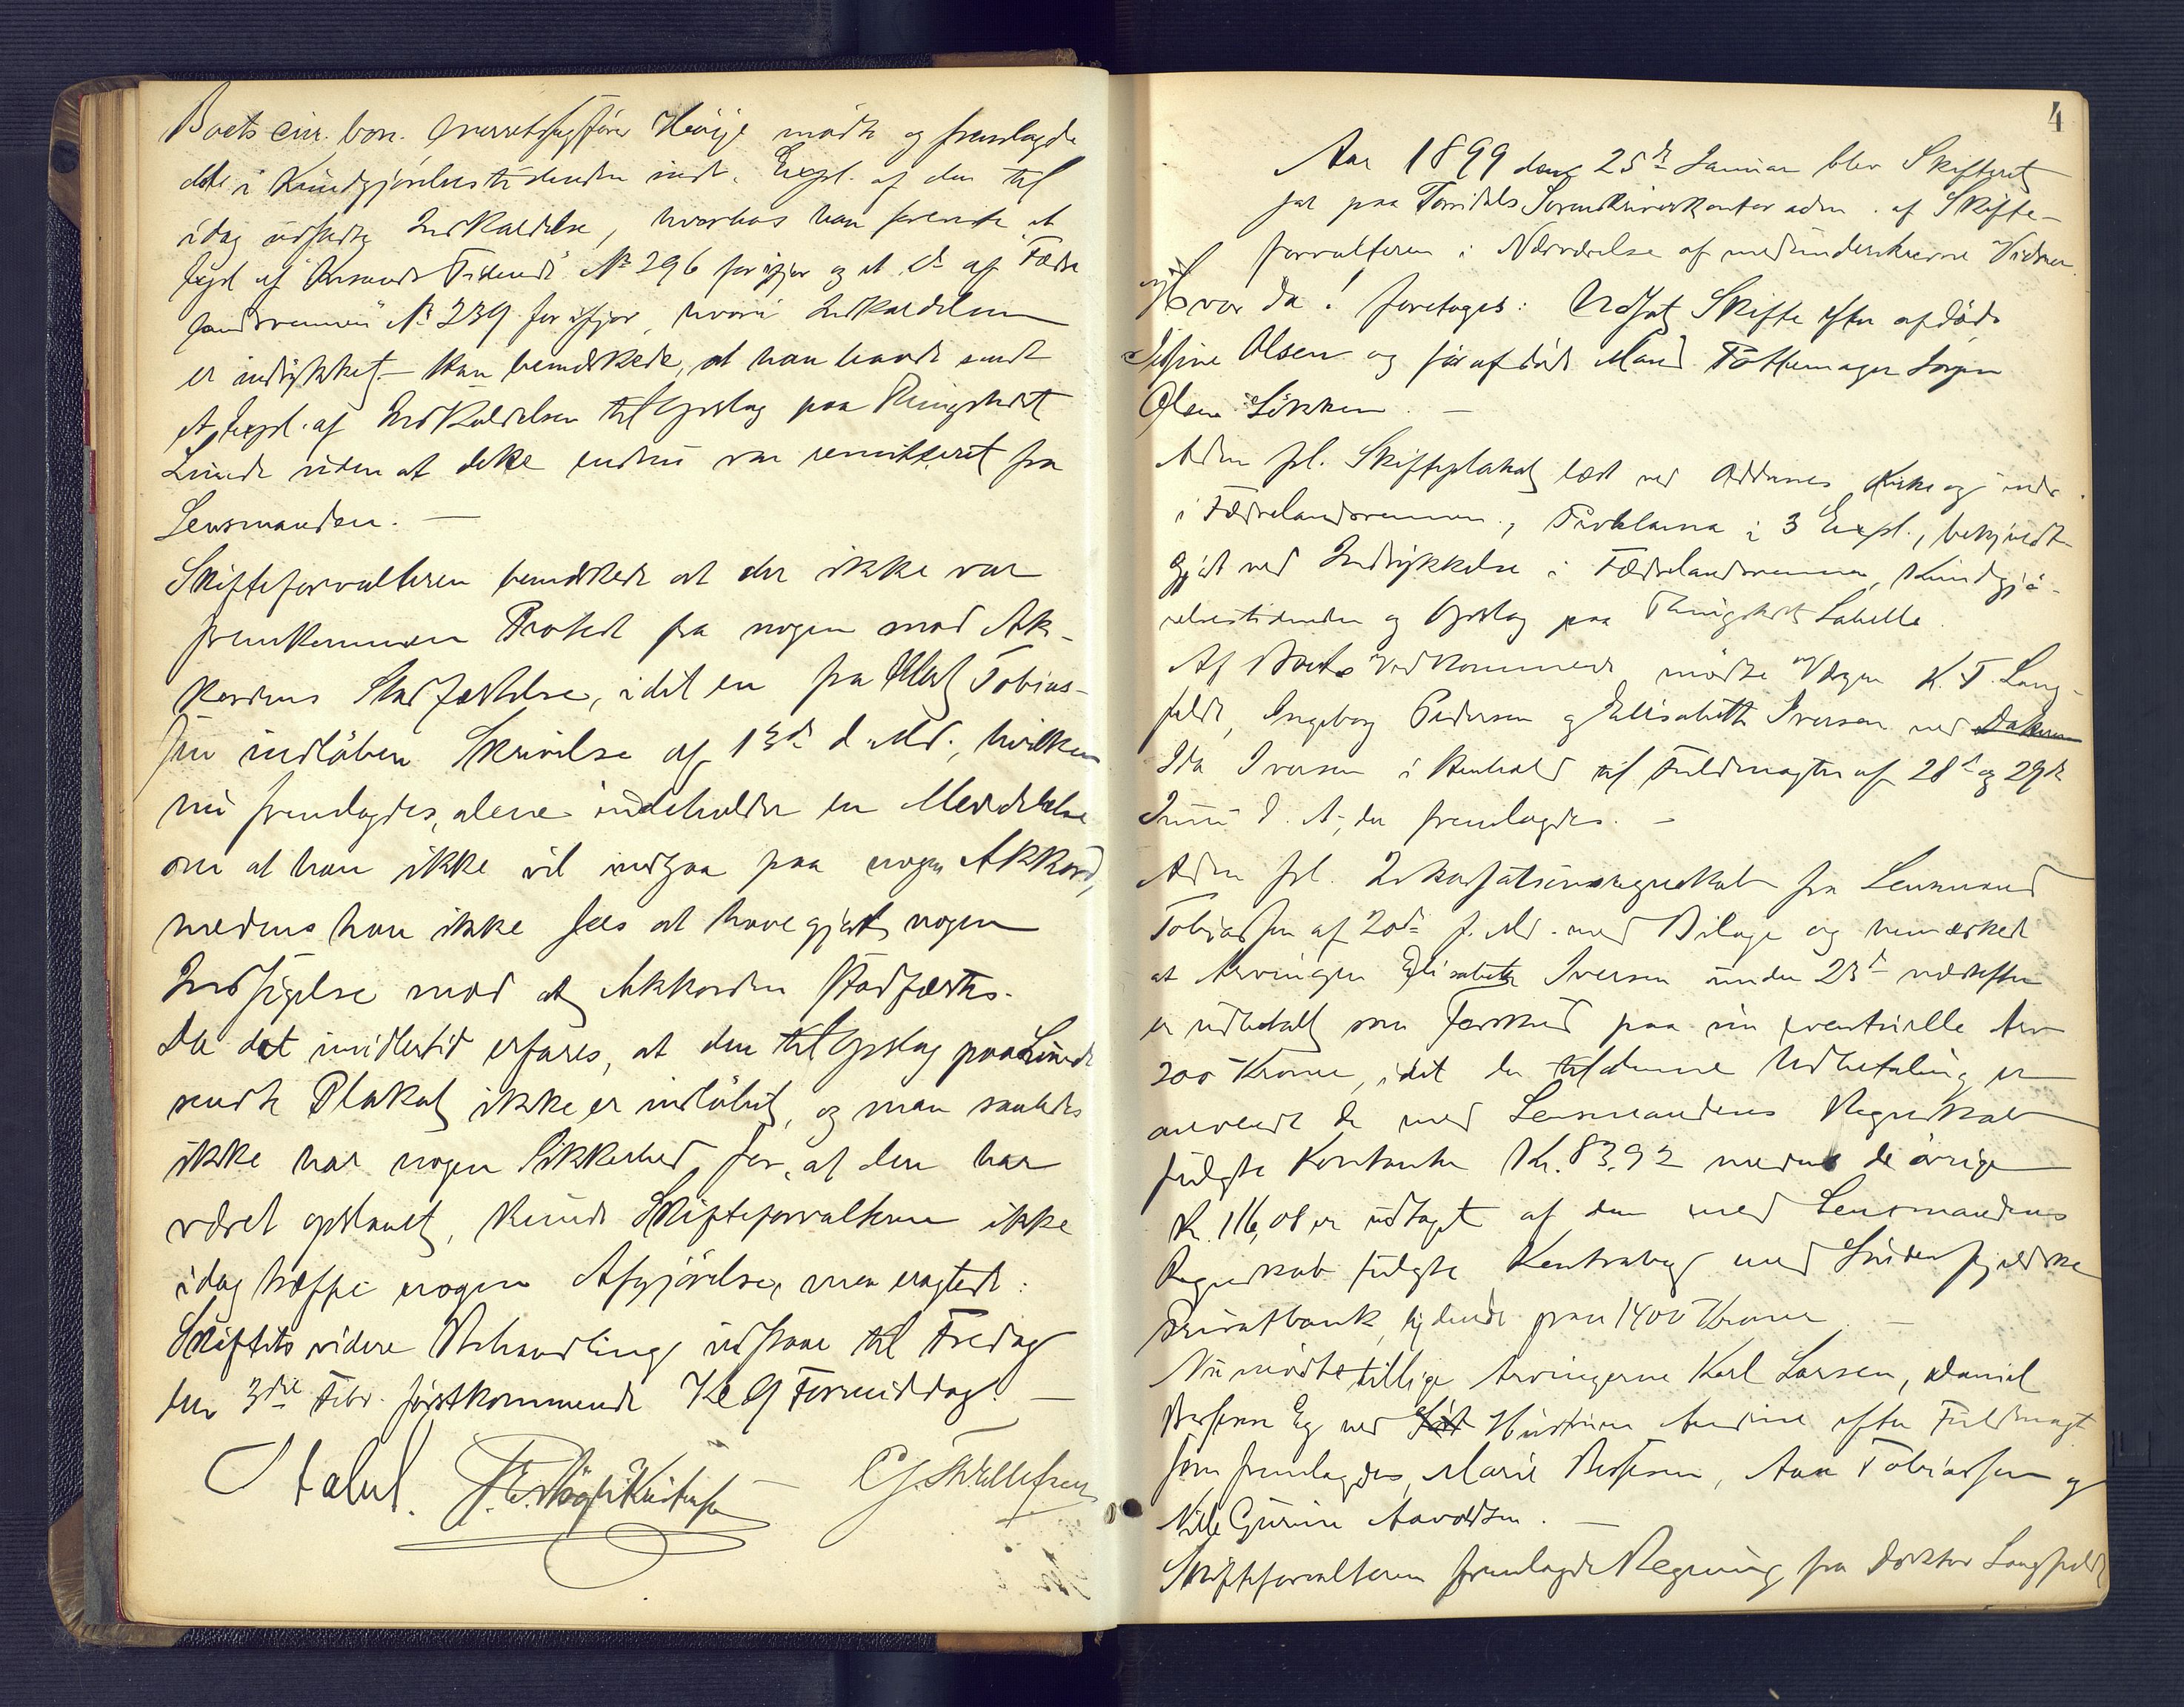 Boets cur. bon. Overretssagfører Heüje mødte og fremlagde
dette i Kundgjørelsestidenden indr. Expl. af den til
idag udfærdig Indkaldelse, hvorhos han foreviste et
Expl af "Krsands Tidende" No 296 for ifjor og et do af Fædre
landsvennen" No 239 for ifjor, hvori Indkaldelsen
er indrykket. – Han bemærkede, at han havde sendt
et Expl. af Indkaldelsen til Opslag paa Thingstedet
Lunde uden at dette endnu var remitteret fra
Lensmanden. —
Skifteforvalteren bemærkede at der ikke var
fremkommen Protest fra nogen mod Ak-
kordens Stadfæstelse, idet en fra Tobias-
sen indløben Skrivelse af 13de d. Md., hvilken
nu fremlagdes, alene indeholder en Meddelelse
om at han ikke vil indgaa paa nogen Akkord,
medens han ikke sees at have gjort nogen
Indsigelse mod at Akkorden stadfæstes.
Da det imidlertid erfares, at den til Opslag paa Lunde
sendte Plakat ikke er indløbet, og man saaledes
ikke har nogen Sikkerhed for, at den har
været opslaaet, kunde Skifteforvalteren ikke
idag træffe nogen Afgjørelse, men eragtede:
Skiftets videre Behandling udstaar til Fredag
den 3die Febr. førstkommende Kl 9 Formiddag. —
Stabel.
4
Aar 1899 den 25de Januar blev Skifteret
sat paa Torridals Sorenskriverkontor adm. af Skifte-
forvalteren i Nærværelse af medunderskrevne Vidner.
Hvor da! foretoges: Udsat Skifte efter afdøde
Olsen og før afdøde Mand Pottemager Jørgen
Olsen Løkken. —
Adm frl. Skifteplakat læst ved Oddernes Kirke og indr.
i Fædrelandsvennen, Proklama i 3 Expl., bekjendt-
gjort ved Indrykkelse i Fædrelandsvennen, Kundgjø-
relsestidenden og Opslag paa Thingstedet Sabelle.
Af Boets Vedkommende mødte Værgen K. T. Lang-
feldt, Ingeborg Pedersen og Elisabeth Iversen ved
Ida Iversen i Henhold til Fuldmagter af 28de og 29de
Juni d. A., der fremlagdes. –
Adm frl. Inkassationsregnskab fra Lensmand
Tobiassen af 20de f. Md. med Bilage og bemærkede
at Arvingen Elisabeth Iversen under 23de næstefter
er udbetalt som Forskud paa sin eventuelle Arv
200 Kroner, idet der til denne Udbetaling er
anvendt de med Lensmandens Regnskab
fulgte Kontanter Kr. 83.92 medens de øvrige
Kr. 116,08 er udtaget af den med Lensmandens
Regnskab fulgte Kontrabog med Søndenfjeldske
Privatbank, lydende paa 1400 Kroner. —
Nu mødte tillige Arvingerne Karl Larsen, Daniel
Berntsen Eg ved Hustruen Andrine efter Fuldmagt
som fremlagdes, Marie Berntsen, Aan Tobiassen og
Nille Gurine Aavoldsen. —
Skifteforvalteren fremlagde Regning fra Doktor Langfeldt